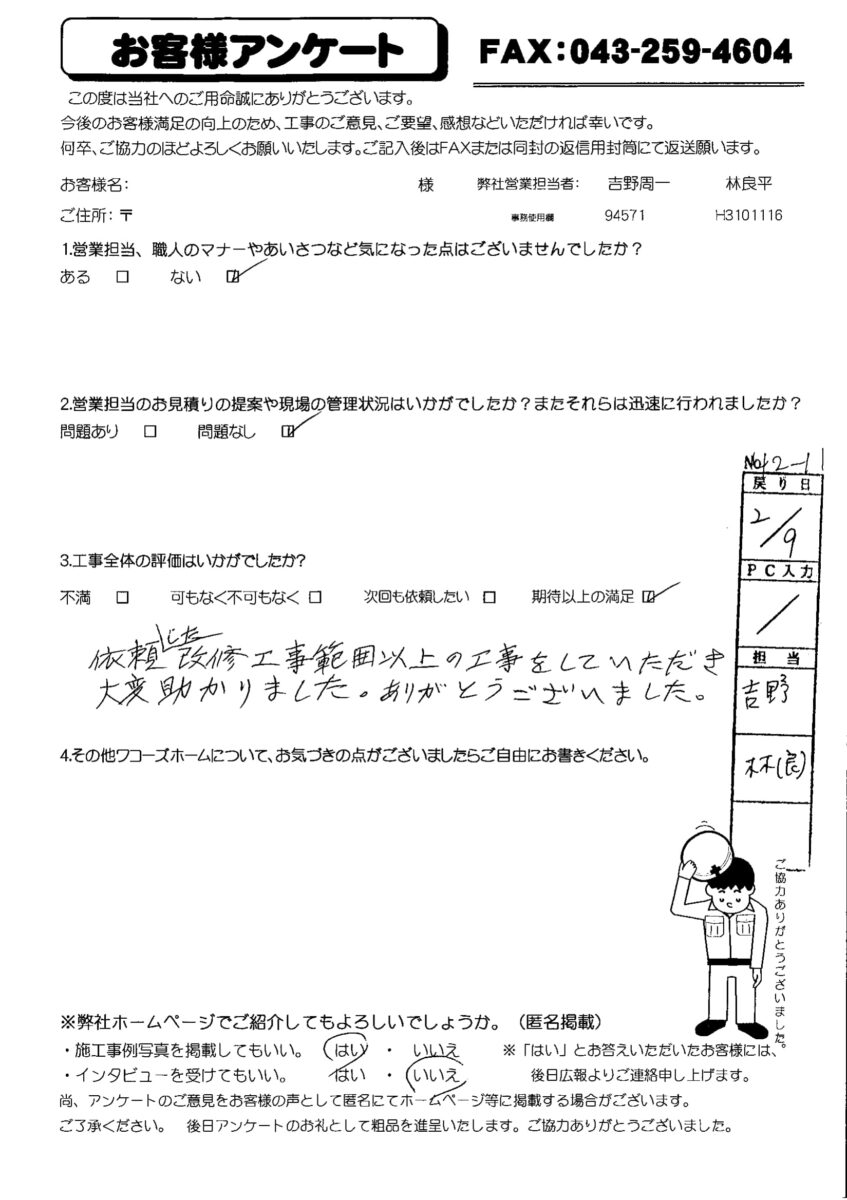 お客様アンケート
FAX:043-259-4604
この度は当社へのご用命誠にありがとうございます。
今後のお客様満足の向上のため、工事のご意見、ご要望、感想などいただければ幸いです。
何卒、ご協力のほどよろしくお願いいたします。ご記入後はFAXまたは同封の返信用封筒にて返送願います。
お客様名: 様 弊社営業担当者: 吉野周一 林良平
ご住所:〒 事務使用欄 94571 H3101116
1.営業担当、職人のマナーやあいさつなど気になった点はございませんでしたか?
ある □ ない ☑
2.営業担当のお見積りの提案や現場の管理状況はいかがでしたか?またそれらは迅速に行われましたか?
問題あり □ 問題なし ☑
3.工事全体の評価はいかがでしたか?
不満 □ 可もなく不可もなく □ 次回も依頼したい □ 期待以上の満足 ☑
依頼した改修工事範囲以上の工事をしていただき
大変助かりました。ありがとうございました。
4.その他ワコーズホームについて、お気づきの点がございましたらご自由にお書きください。
戻り日
2/9
PC入力
/
担当
吉野
林(良)
ご協力ありがとうございました。
※弊社ホームページでご紹介してもよろしいでしょうか。(匿名掲載)
・施工事例写真を掲載してもいい。 はい ・ いいえ ※「はい」とお答えいただいたお客様には、
・インタビューを受けてもいい。 はい ・ いいえ 後日広報よりご連絡申し上げます。
尚、アンケートのご意見をお客様の声として匿名にてホームページ等に掲載する場合がございます。
ご了承ください。 後日アンケートのお礼として粗品を進呈いたします。ご協力ありがとうございました。